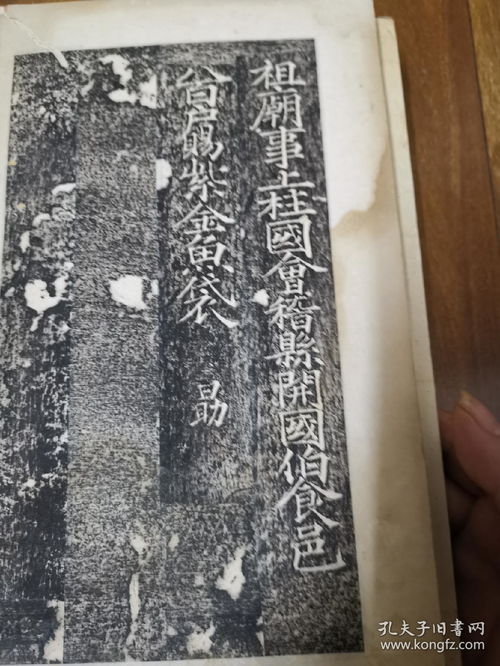 祖廟事上柱國會稽縣開國伯食邑
八百戶賜紫金魚袋 勗
孔夫子旧书网
www.kongfz.com